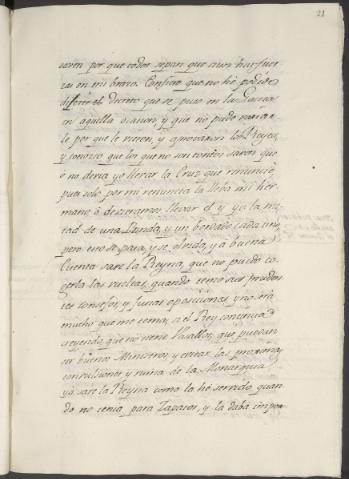 21
para que todos sepan que aun hay fuer
zas en mi brazo. Confieso que no he podido
diferir el decreto que se puso en la
en aquella ocasion, y que no pude
le por que le vieron, y aprovaron los Reyes,
y conozco que los que no son tontos saven que
o no devia yo llevar la Cruz que renunció,
pues solo por mi renuncia la lleba mi her
mano ó devieramos llevar el y yo la mi
tad de una Vanda, y un bordado cada uno,
pero eso se para, y se olvida, y á buena
Cuenta save la Reyna, que no puedo co
gerla las bueltas, quando temo sus pruden
tes consejos, y justas oposiciones y no será
mucho que me tema, si el Rey continua
creyendo que no tiene Vasallos, que puedan
ser buenos Ministros, y evitar las proximas
convulsiones y ruina de la Monarquia
ya save la Reyna como la hé servido quan
do no tenia para Zapatos, y la daba impor